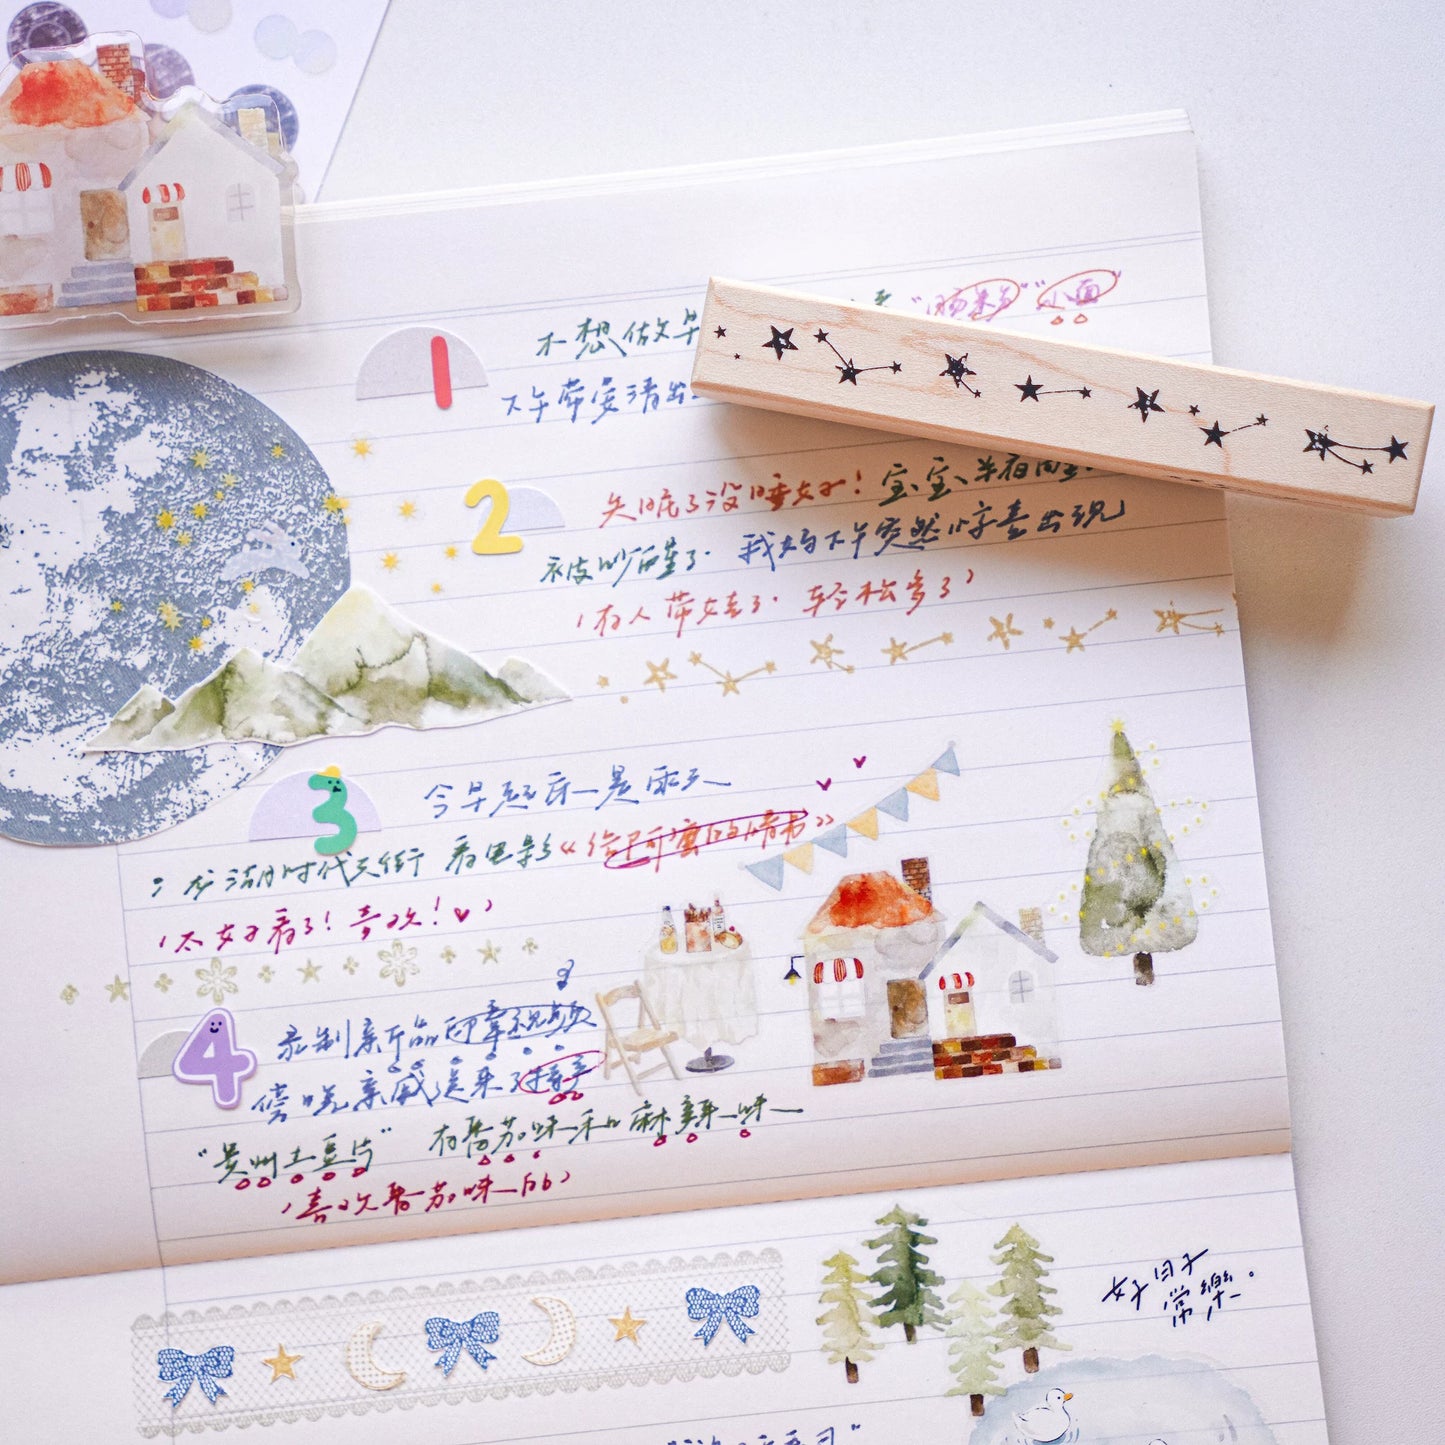 1 不想做早 "肠米多" "小面"
下午带安清出
2 失眠了没睡好!宝宝半夜
被吵醒了. 我妈下午突然惊喜出现
(有人带娃了. 轻松多了)
3 今早起床一是雨天
: 龙湖时代天街 看电影《给阿嬷的情书》
(太好看了!喜欢!)
4 录制新品印章视频
傍晚亲戚送来了特产
"贵州土豆片" 有番茄味和麻辣味
(喜欢番茄味的)
好日子
常樂.